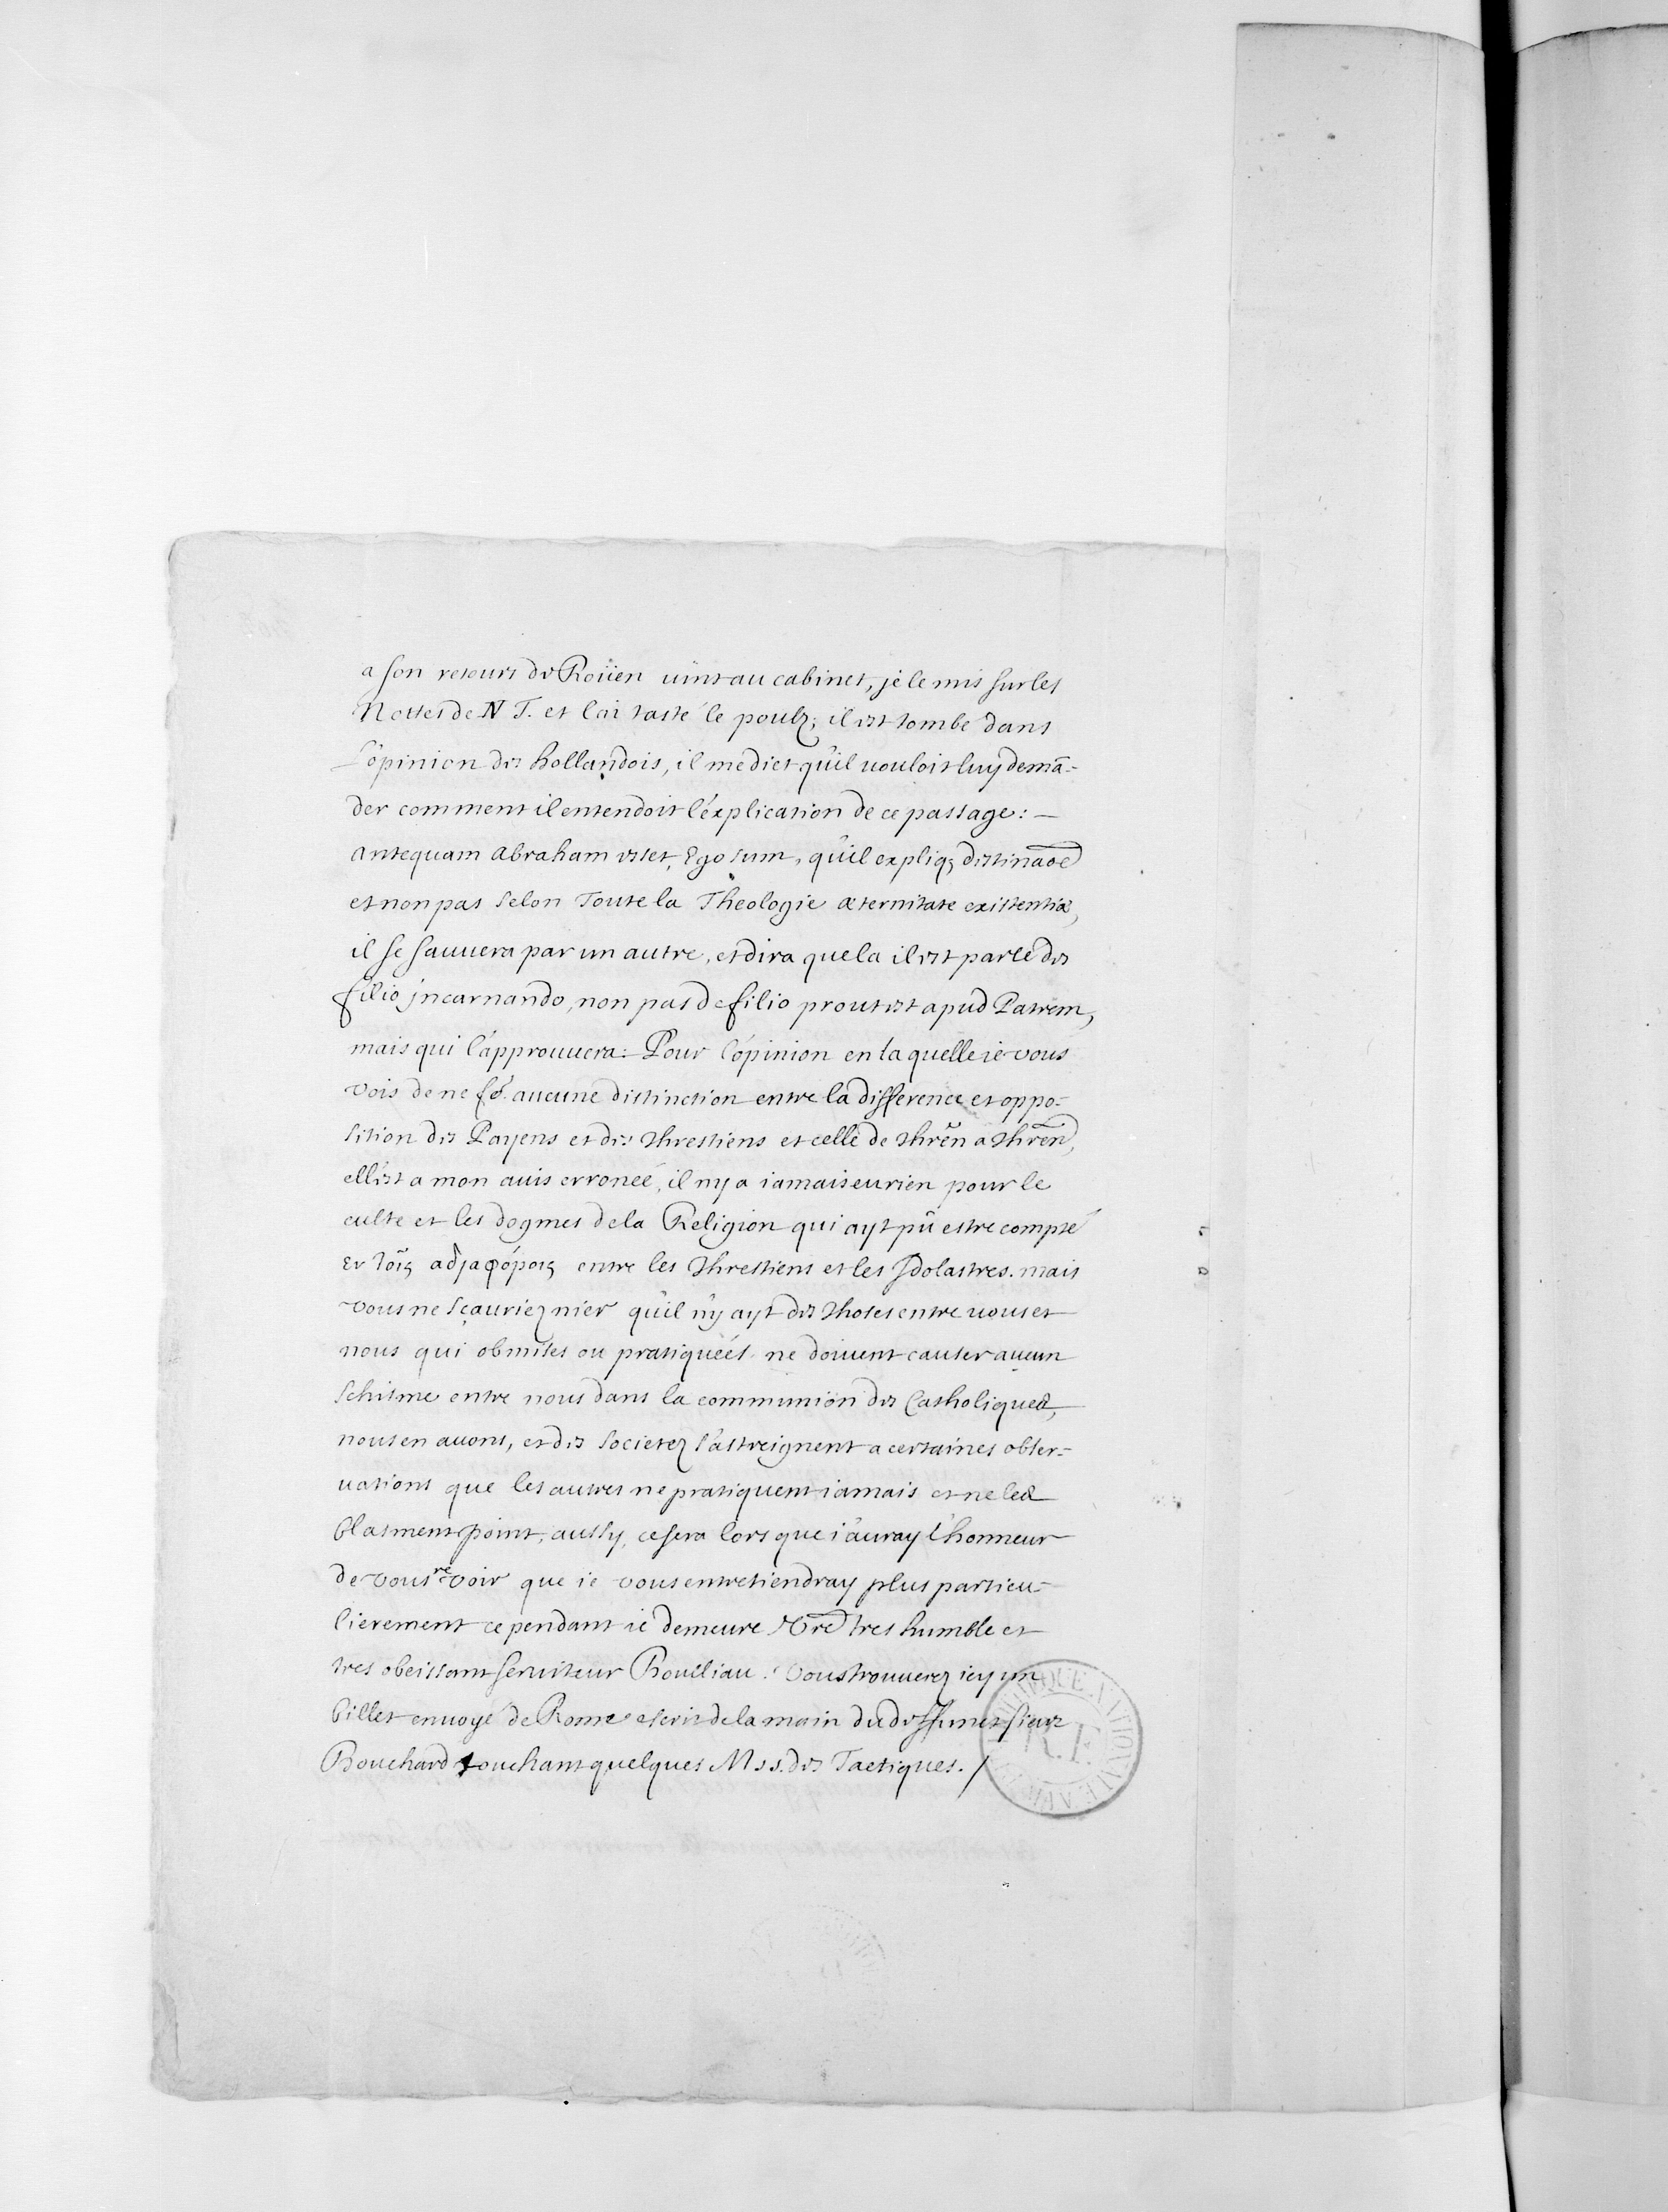 a son retours de Roüen uint au cabinet, je le mis sur les
Nottes de N T. et l'ai tasté le poulz; il est tombé dans
L'opinion des hollandois, il me dict qu'il uouloit luy demā-
der comment il entendoit l'explication de ce passage: —
antequam abraham esset, Ego sum, qu'il expliq₃ destinaōe
et non pas selon Toute la Theologie æternitate existentiæ,
il se sauuera par un autre, et dira que la il est parlé de
filio jncarnando, non pas de filio prout est apud Patrem,
mais qui l'approuuera: Pour l'opinion en laquelle ie vous
vois de ne fē aucune distinction entre la difference et oppo-
sition des Payens et des Chrestiens et celle de Chrēn a Chrēn,
ell'est a mon auis erronée, il ny a iamais eu rien pour le
culte et les dogmes de la Religion qui ayt pû estre compté
εν τοῖς αδιαφόροις entre les Chrestiens et les Idolastres. mais
vous ne sçauriez nier qu'il n'y ayt des Choses entre uous et
nous qui obmises ou pratiquéés ne doiuent causer aucun
schisme entre nous dans la communion des Catholiques,
nous en auons, et des societez s'astreignent a certaines obser-
uations que les autres ne pratiquent iamais et ne les
blasment point, aussy, ce sera lors que i'auray l'honneur
de vous revoir que ie vous entretiendray plus particu-
lierement ce pendant ie demeure Vr̄e tres humble et
tres obeissant seruiteur Boulliau. Vous trouuerez icy un
billet enuoyé de Rome escrit de la main du deffunct sieur
Bouchard touchant quelques Mss. des Tactiques. /
R.F.